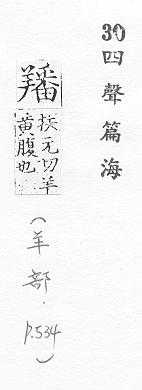 30四聲篇海
羳
扶元切羊
黃腹也
(羊部．p.534)